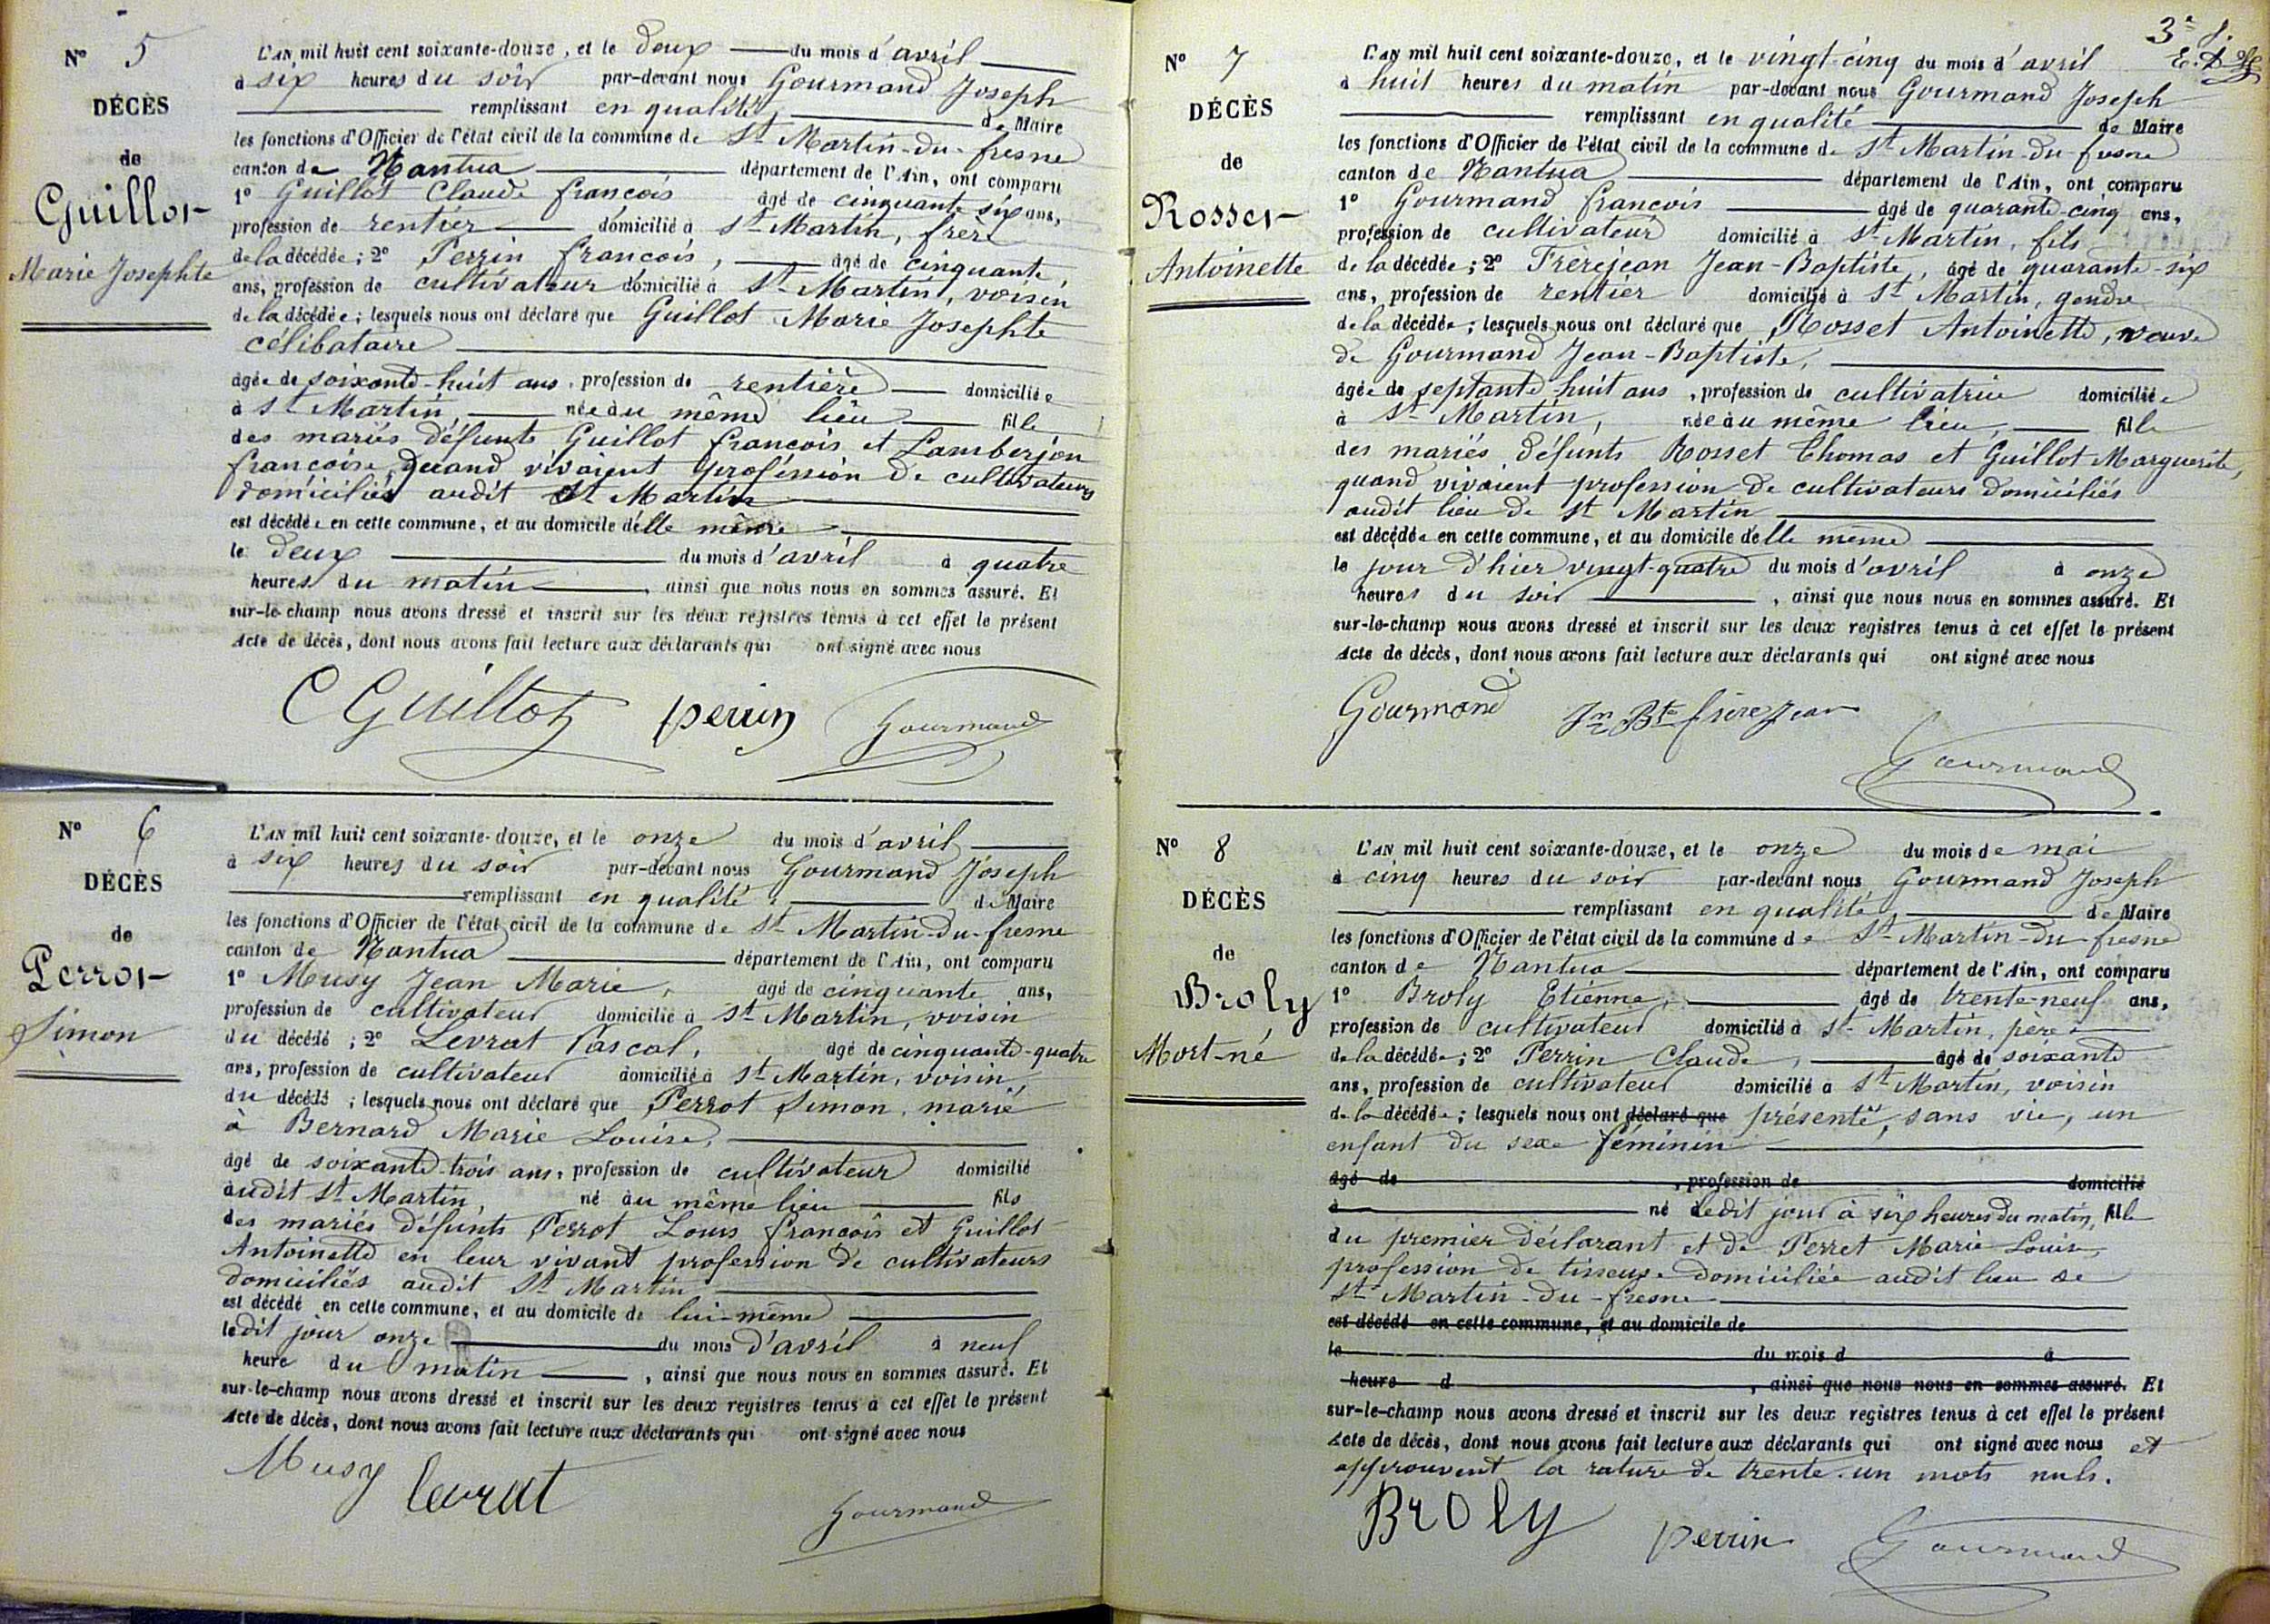 N° 5
DÉCÈS
de
Guillot
Marie Josephte
L'AN mil huit cent soixante-douze, et le deux du mois d'avril
à six heures du soir par-devant nous Gourmand Joseph
remplissant en qualité de Maire
les fonctions d'Officier de l'état civil de la commune de St Martin-du-fresne
canton de Nantua département de l'Ain, ont comparu
1° Guillot Claude françois âgé de cinquante six ans,
profession de rentier domicilié à St Martin, frère
de la décédée; 2° Perrin françois, âgé de cinquante
ans, profession de cultivateur domicilié à St Martin, voisin
de la décédée; lesquels nous ont déclaré que Guillot Marie Josephte
célibataire
âgée de soixante-huit ans, profession de rentière domiciliée
à St Martin, née au même lieu fille
des mariés défunts Guillot françois et Lamberjon
françoise, quand vivaient profession de cultivateurs
domiciliés audit St Martin
est décédée en cette commune, et au domicile d'elle même
le deux du mois d'avril à quatre
heures du matin, ainsi que nous nous en sommes assuré. Et
sur-le-champ nous avons dressé et inscrit sur les deux registres tenus à cet effet le présent
Acte de décès, dont nous avons fait lecture aux déclarants qui ont signé avec nous
C Guillot perrin Gourmand
N° 6
DÉCÈS
de
Perrot
Simon
L'AN mil huit cent soixante-douze, et le onze du mois d'avril
à six heures du soir par-devant nous Gourmand Joseph
remplissant en qualité de Maire
les fonctions d'Officier de l'état civil de la commune de St Martin-du-fresne
canton de Nantua département de l'Ain, ont comparu
1° Musy Jean Marie, âgé de cinquante ans,
profession de cultivateur domicilié à St Martin, voisin
du décédé; 2° Levrat Pascal, âgé de cinquante-quatre
ans, profession de cultivateur domicilié à St Martin, voisin
du décédé; lesquels nous ont déclaré que Perrot Simon, marié
à Bernard Marie Louise,
âgé de soixante-trois ans, profession de cultivateur domicilié
audit St Martin, né au même lieu fils
des mariés défunts Perrot Louis françois et Guillot
Antoinette en leur vivant profession de cultivateurs
domiciliés audit St Martin
est décédé en cette commune, et au domicile de lui-même
ledit jour onze du mois d'avril à neuf
heure du matin, ainsi que nous nous en sommes assuré. Et
sur-le-champ nous avons dressé et inscrit sur les deux registres tenus à cet effet le présent
Acte de décès, dont nous avons fait lecture aux déclarants qui ont signé avec nous
Musy levrat Gourmand
N° 7
DÉCÈS
de
Rosset
Antoinette
L'AN mil huit cent soixante-douze, et le vingt-cinq du mois d'avril
à huit heures du matin par-devant nous Gourmand Joseph
remplissant en qualité de Maire
les fonctions d'Officier de l'état civil de la commune de St Martin-du fresne
canton de Nantua département de l'Ain, ont comparu
1° Gourmand françois âgé de quarante-cinq ans,
profession de cultivateur domicilié à St Martin, fils
de la décédée; 2° Frèrejean Jean-Baptiste, âgé de quarante-six
ans, profession de rentier domicilié à St Martin, gendre
de la décédée; lesquels nous ont déclaré que Rosset Antoinette, veuve
de Gourmand Jean-Baptiste,
âgée de septante-huit ans, profession de cultivatrice domiciliée
à St Martin, née au même lieu, fille
des mariés défunts Rosset Thomas et Guillot Marguerite,
quand vivaient profession de cultivateurs domiciliés
audit lieu de St Martin
est décédée en cette commune, et au domicile d'elle même
le jour d'hier vingt-quatre du mois d'avril à onze
heures du soir, ainsi que nous nous en sommes assuré. Et
sur-le-champ nous avons dressé et inscrit sur les deux registres tenus à cet effet le présent
Acte de décès, dont nous avons fait lecture aux déclarants qui ont signé avec nous
Gourmand Jn Bte frèreJean
Gourmand
N° 8
DÉCÈS
de
Broly
Mort-né
L'AN mil huit cent soixante-douze, et le onze du mois de mai
à cinq heures du soir par-devant nous Gourmand Joseph
remplissant en qualité de Maire
les fonctions d'Officier de l'état civil de la commune de St Martin-du-fresne
canton de Nantua département de l'Ain, ont comparu
1° Broly Etienne, âgé de trente-neuf ans,
profession de cultivateur domicilié à St Martin, père
de la décédée; 2° Perrin Claude, âgé de soixante
ans, profession de cultivateur domicilié à St Martin, voisin
de la décédée; lesquels nous ont déclaré que présenté, sans vie, un
enfant du sexe féminin
âgé de , profession de domicilié
à né ledit jour à six heures du matin, fille
du premier déclarant et de Perret Marie Louise
profession de tisseuse domiciliée audit lieu de
St Martin-du-fresne
est décédé en cette commune, et au domicile de
le du mois d à
heure d , ainsi que nous nous en sommes assuré. Et
sur-le-champ nous avons dressé et inscrit sur les deux registres tenus à cet effet le présent
Acte de décès, dont nous avons fait lecture aux déclarants qui ont signé avec nous et
approuvent la rature de trente-un mots nuls.
Broly perrin Gourmand